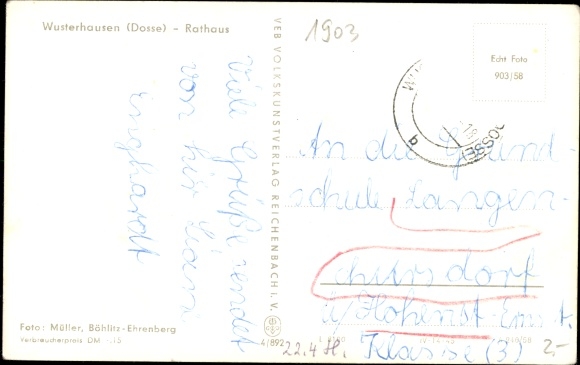 Wusterhausen (Dosse) - Rathaus
1903
Echt Foto
903/58
Viele Grüße sendet
von hier
VEB VOLKSKUNSTVERLAG REICHENBACH I. V.
DOSSE
An die Grund-
schule Langen-
chursdorf
ü/Hohenst-Ernst.
Klasse (3)
Foto: Müller, Böhlitz-Ehrenberg
Verbraucherpreis DM -.15
4/892
22.4
2.-